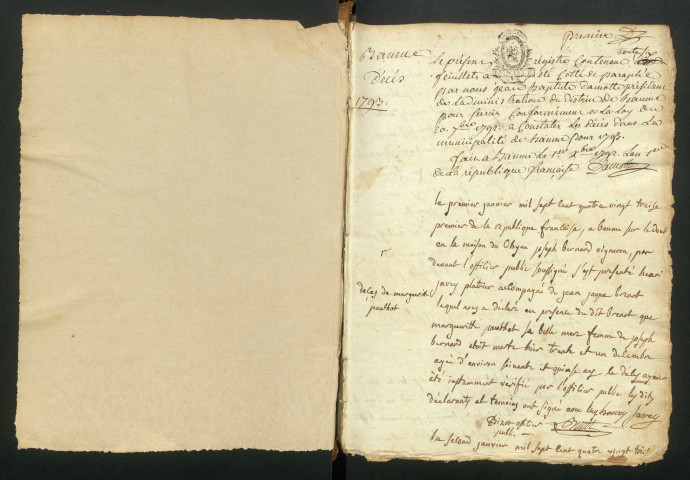 Premier
Beaune
Décés
1793.
Le présent registre Contenant
feuillets a été Cotté et paraphé
par nous jean Baptiste Damotte président
de L'administration du District de Beaune
pour servir Conformément a La Loy du
20. 7bre 1792. a Constater Les Décés dans La
municipalité de Beaune pour 1793.
fait a Beaune Le 1er Xbre 1792. L'an 1er
de La république française Damotte
le premier janvier mil sept cent quatre vingt treise
premier de la republique francaise, a beaune sur le
en la maison du Citoyen joseph bernard vigneron, par
devant l'officier public soussigné s'est presenté henri
javey platrier accompagné de jean
lequel nous a déclaré en presence du dit que
margueritte pauthot sa belle mere femme de joseph
bernard etoit morte hier trente et un decembre
agée d'environ soixante et quinse ans le deces ayant
été instamment vérifié par l'officier public lesdits
declarants et temoins ont signé avec henry Javey
officier
public
1er
deces de margueritte
pauthot
le second janvier mil sept cent quatre vingt treise